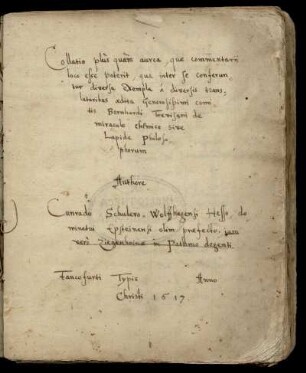 Collatio plus quam aurea que commentarii
loco esse poterit, qua inter se conferun
tur diversa Exempla a diversis trans=
latoribus edita Generosissimi comi
tis Bernhardi Trevisani de
miraculo chemico sive
Lapide Philoso
phorum
Authore
Cunrado Schulero, Wolffhagensi Hesso, do
minatui Epsteinensi olim praefecto, iam
vero Ziegenhainae in Patmo degenti.
Francofurti Typis Anno
Christi 1617